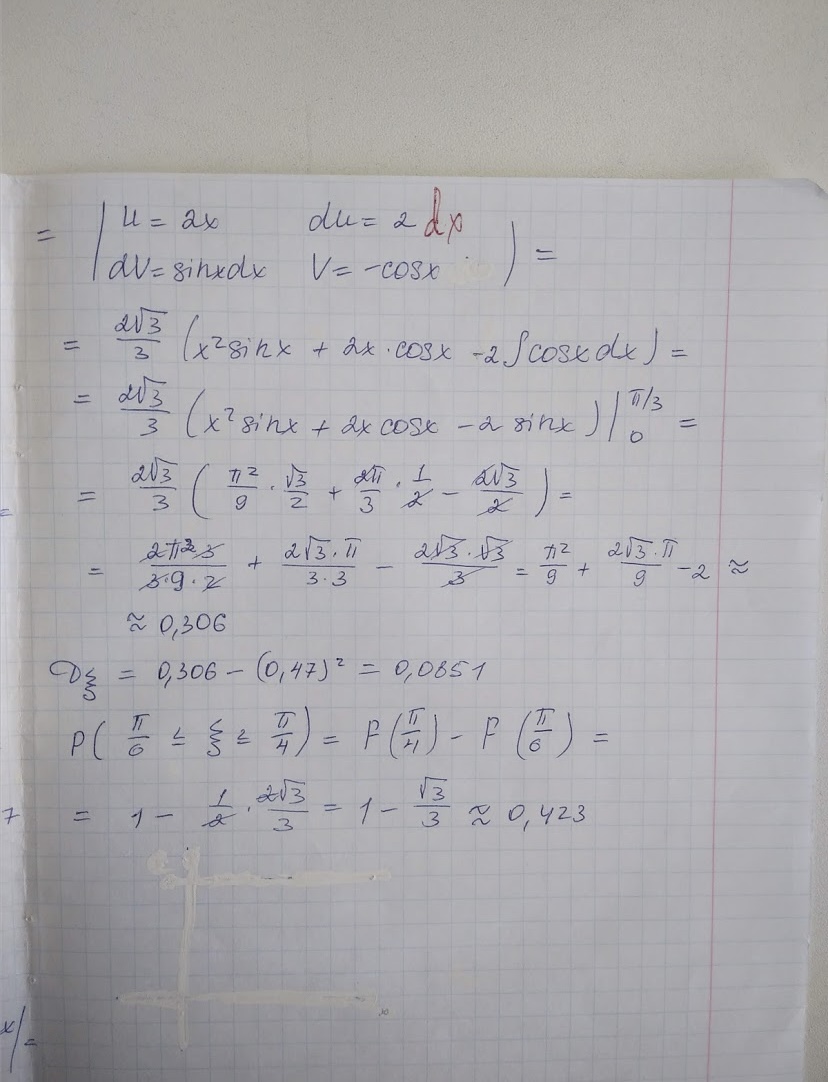 = | u = 2x du = 2 dx
dV = sinxdx V = -cosx | =
= 2√3/3 (x² sinx + 2x · cosx - 2∫cosxdx) =
= 2√3/3 (x² sinx + 2x cosx - 2 sinx) |₀^π/3 =
= 2√3/3 (π²/9 · √3/2 + 2π/3 · 1/2 - 2√3/2) =
= 2π²3/3·9·2 + 2√3·π/3·3 - 2√3·√3/3 = π²/9 + 2√3·π/9 - 2 ≈
≈ 0,306
Dξ = 0,306 - (0,47)² = 0,0851
P(π/6 ≤ ξ ≥ π/4) = F(π/4) - F(π/6) =
7 = 1 - 1/2 · 2√3/3 = 1 - √3/3 ≈ 0,423
x/=